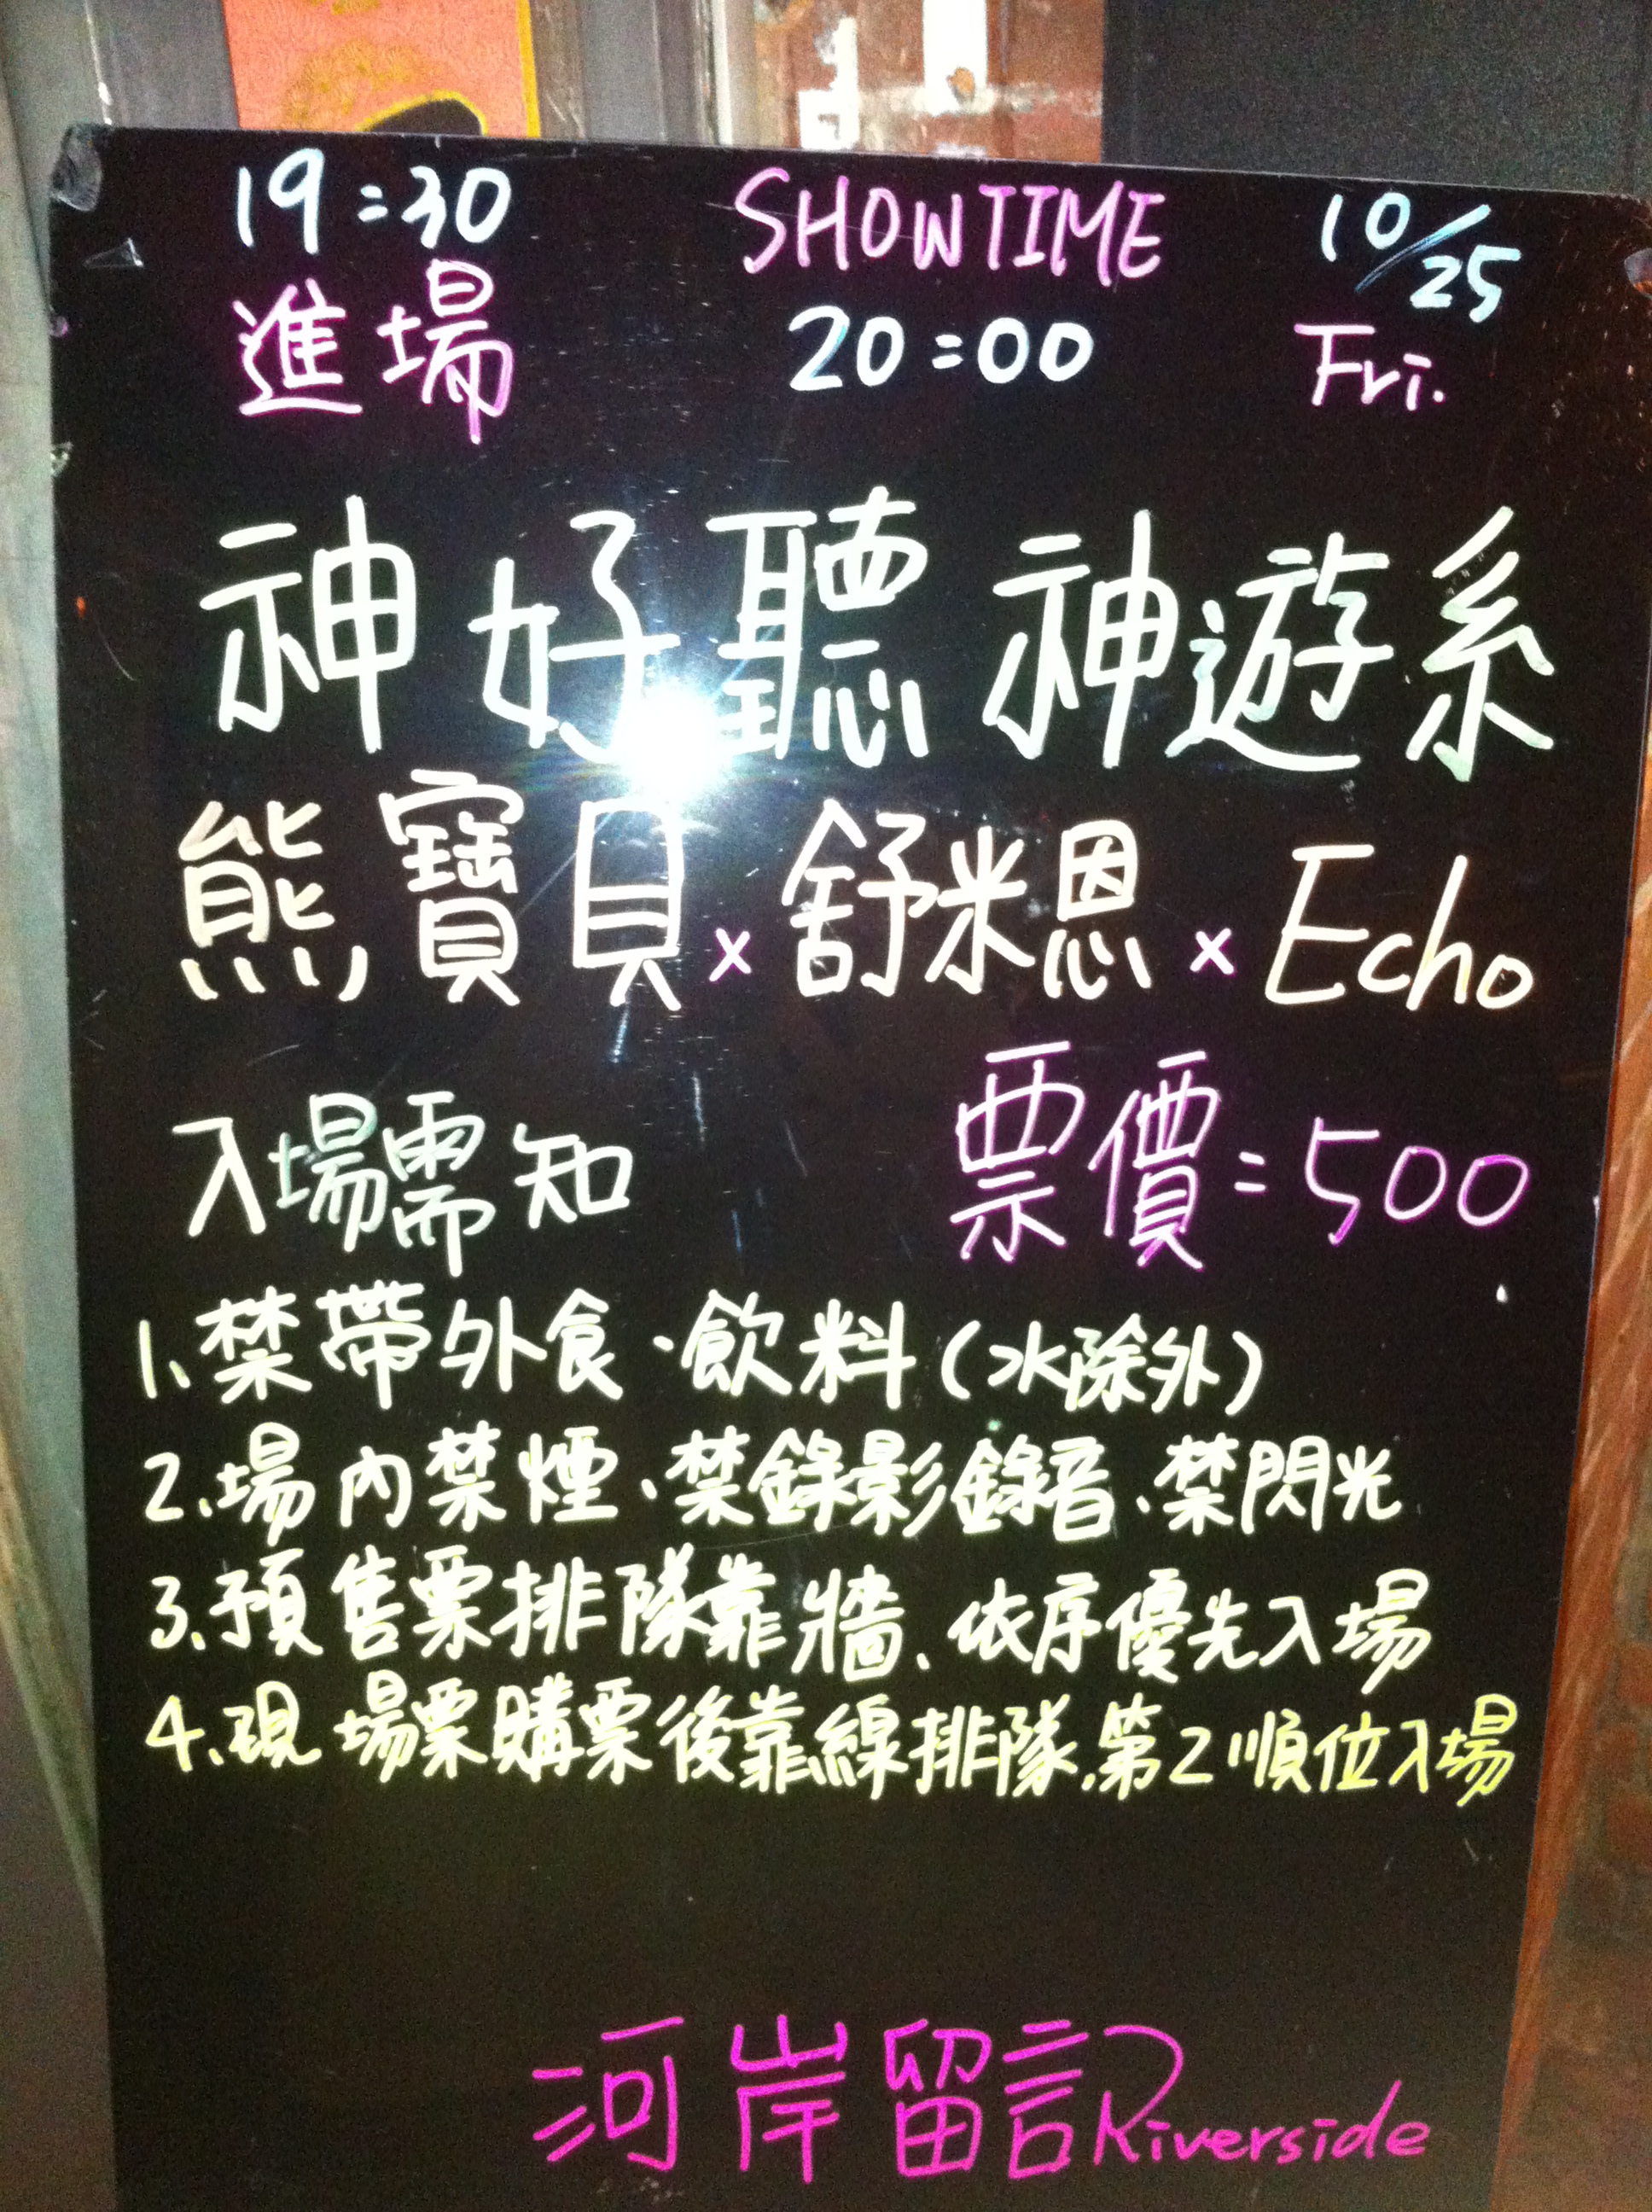 19:30 SHOWTIME 10/25
進場 20:00 Fri.
神好聽神遊系
熊寶貝x舒米恩xEcho
入場需知 票價=500
1、禁帶外食、飲料(水除外)
2、場內禁煙、禁錄影錄音、禁閃光
3、預售票排隊靠牆、依序優先入場
4、現場票購票後靠線排隊、第2順位入場
河岸留言Riverside